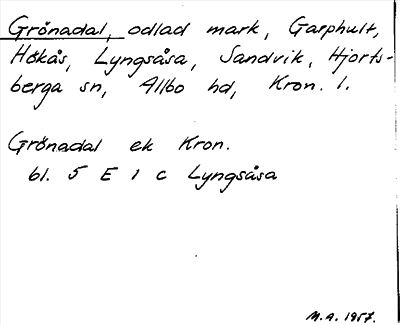 Grönadal, odlad mark, Garphult,
Hökås, Lyngsåsa, Sandvik, Hjorts-
berga sn, Allbo hd, Kron. l.
Grönadal ek Kron.
bl. 5 E 1 c Lyngsåsa
M.A. 1957.